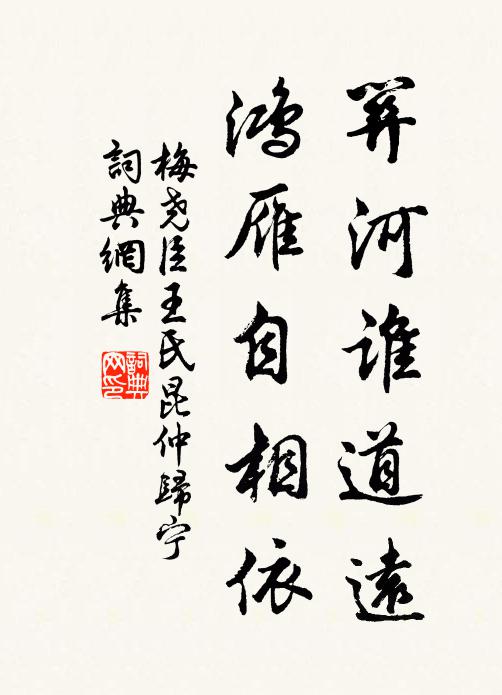 河誰道遠
鴻雁自相依
梅尧臣王氏昆仲歸宁
詞典網集
詞典
网印